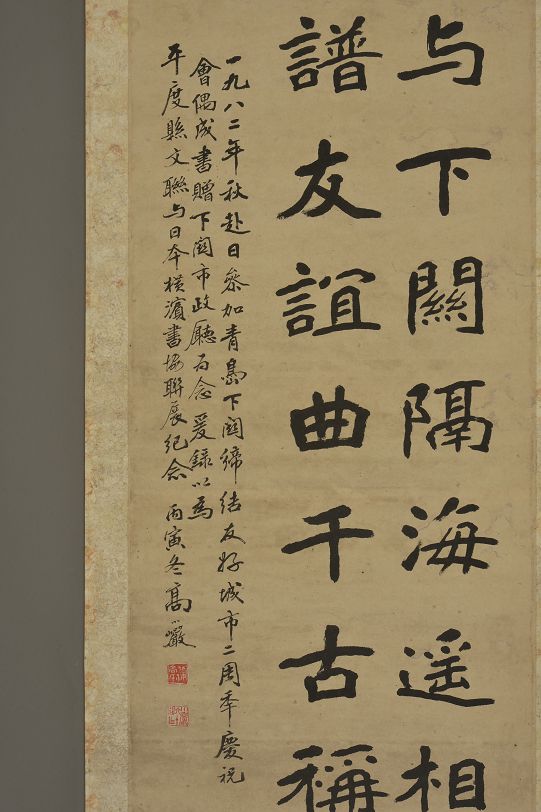 与下關隔海遥相
譜友誼曲千古稱
一九八二年秋赴日參加青島下関締结友好城市二周年慶祝
會偶成書贈下関市政廳留念爰録以爲
平度縣文聯与日本橫濱書協聯展纪念 丙寅冬高小巖